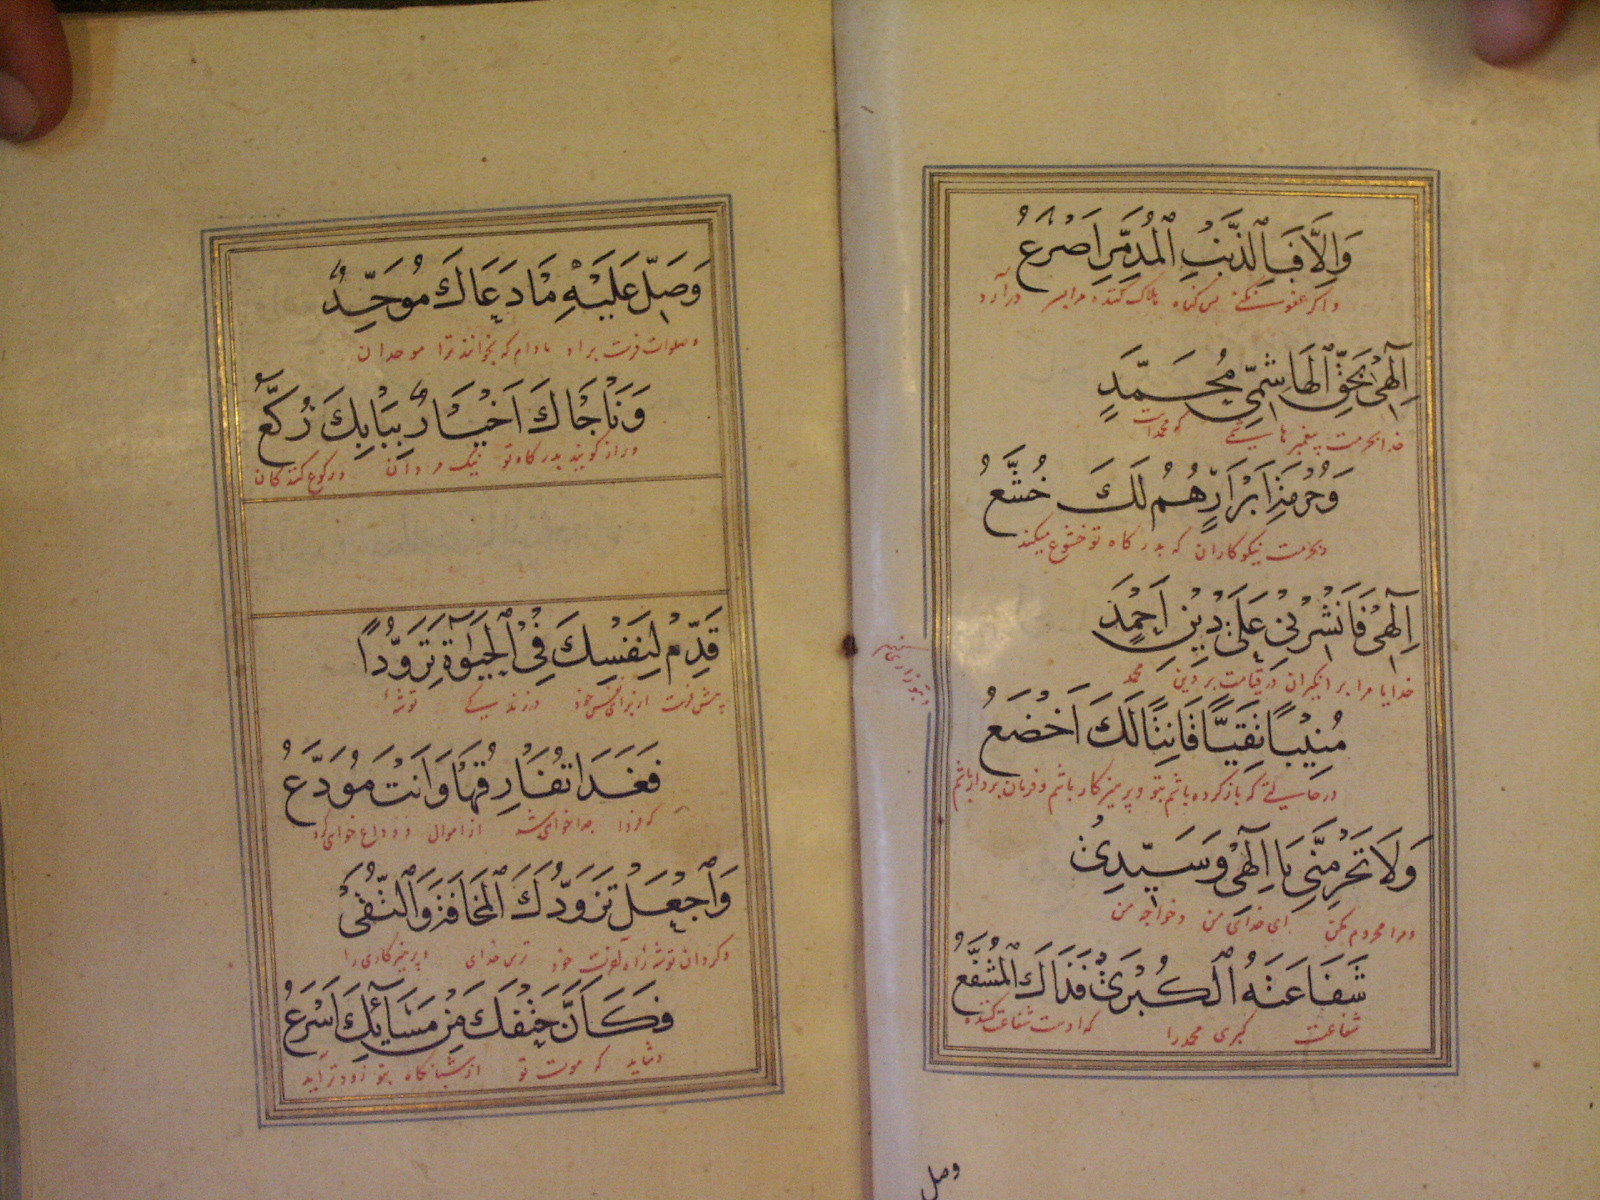 وَاِلَّا فَبِالذَّنْبِ الْمُدَمِّرِ اَصْرَعُ
واکر عفو نکنی بس کناه هلاک کننده مرا بسر درآرد
اِلٰهِیْ بِحَقِّ الْهَاشِمِیِّ مُحَمَّدٍ
خدا بحرمت پیغمبر هاشمی که محمدست
وَحُرْمَةِ اَبْرَارٍ هُمْ لَكَ خُشَّعُ
وبحرمت نیکوکاران که بدرکاه تو خشوع میکنند
اِلٰهِیْ فَانْشُرْنِیْ عَلٰی دِیْنِ اَحْمَدٍ
خدایا مرا بر انکیزان در قیامت بر دین محمد
مُنِیْبًا نَقِیًّا قَانِتًا لَكَ اَخْضَعُ
در حالتی که باز کرده باشم بتو و پرهیزکار باشم و فرمان بردار باشم
وَلَا تَحْرِمَنِّیْ یَا اِلٰهِیْ وَسَیِّدِیْ
ومرا محروم مکن ای خدای من وخواجه من
شَفَاعَتَهُ الْكُبْرٰی فَذَاكَ الْمُشَفَّعُ
شفاعت کبری محمد را که اوست شفاعت کننده
وصل
وَصَلِّ عَلَیْهِ مَا دَعَاكَ مُوَحِّدٌ
وصلوات فرست براو مادام که بخوانند ترا موحدان
وَنَاجَاكَ اَخْیَارٌ بِبَابِكَ رُكَّعُ
وراز کویند بدرکاه تو نیک مردان در رکوع کنندکان
قَدِّمْ لِنَفْسِكَ فِی الْحَیٰوةِ تَزَوُّدًا
پیش فرست از برای نفس خود در زندکی توشهٔ
فَغَدًا تُفَارِقُهَا وَاَنْتَ مُوَدِّعُ
که فردا جدا خواهی شد از اموال و وداع خواهی کرد
وَاجْعَلْ تَزَوُّدَكَ الْمَخَافَةَ وَالتُّقٰی
وکردان توشه راه آخرت خود ترس خدای وپرهیزکاری را
فَكَاَنَّ حَتْفَكَ مِنْ مَسَائِكَ اَسْرَعُ
وشاید که موت تو از شبانکاه بتو زودتر آید